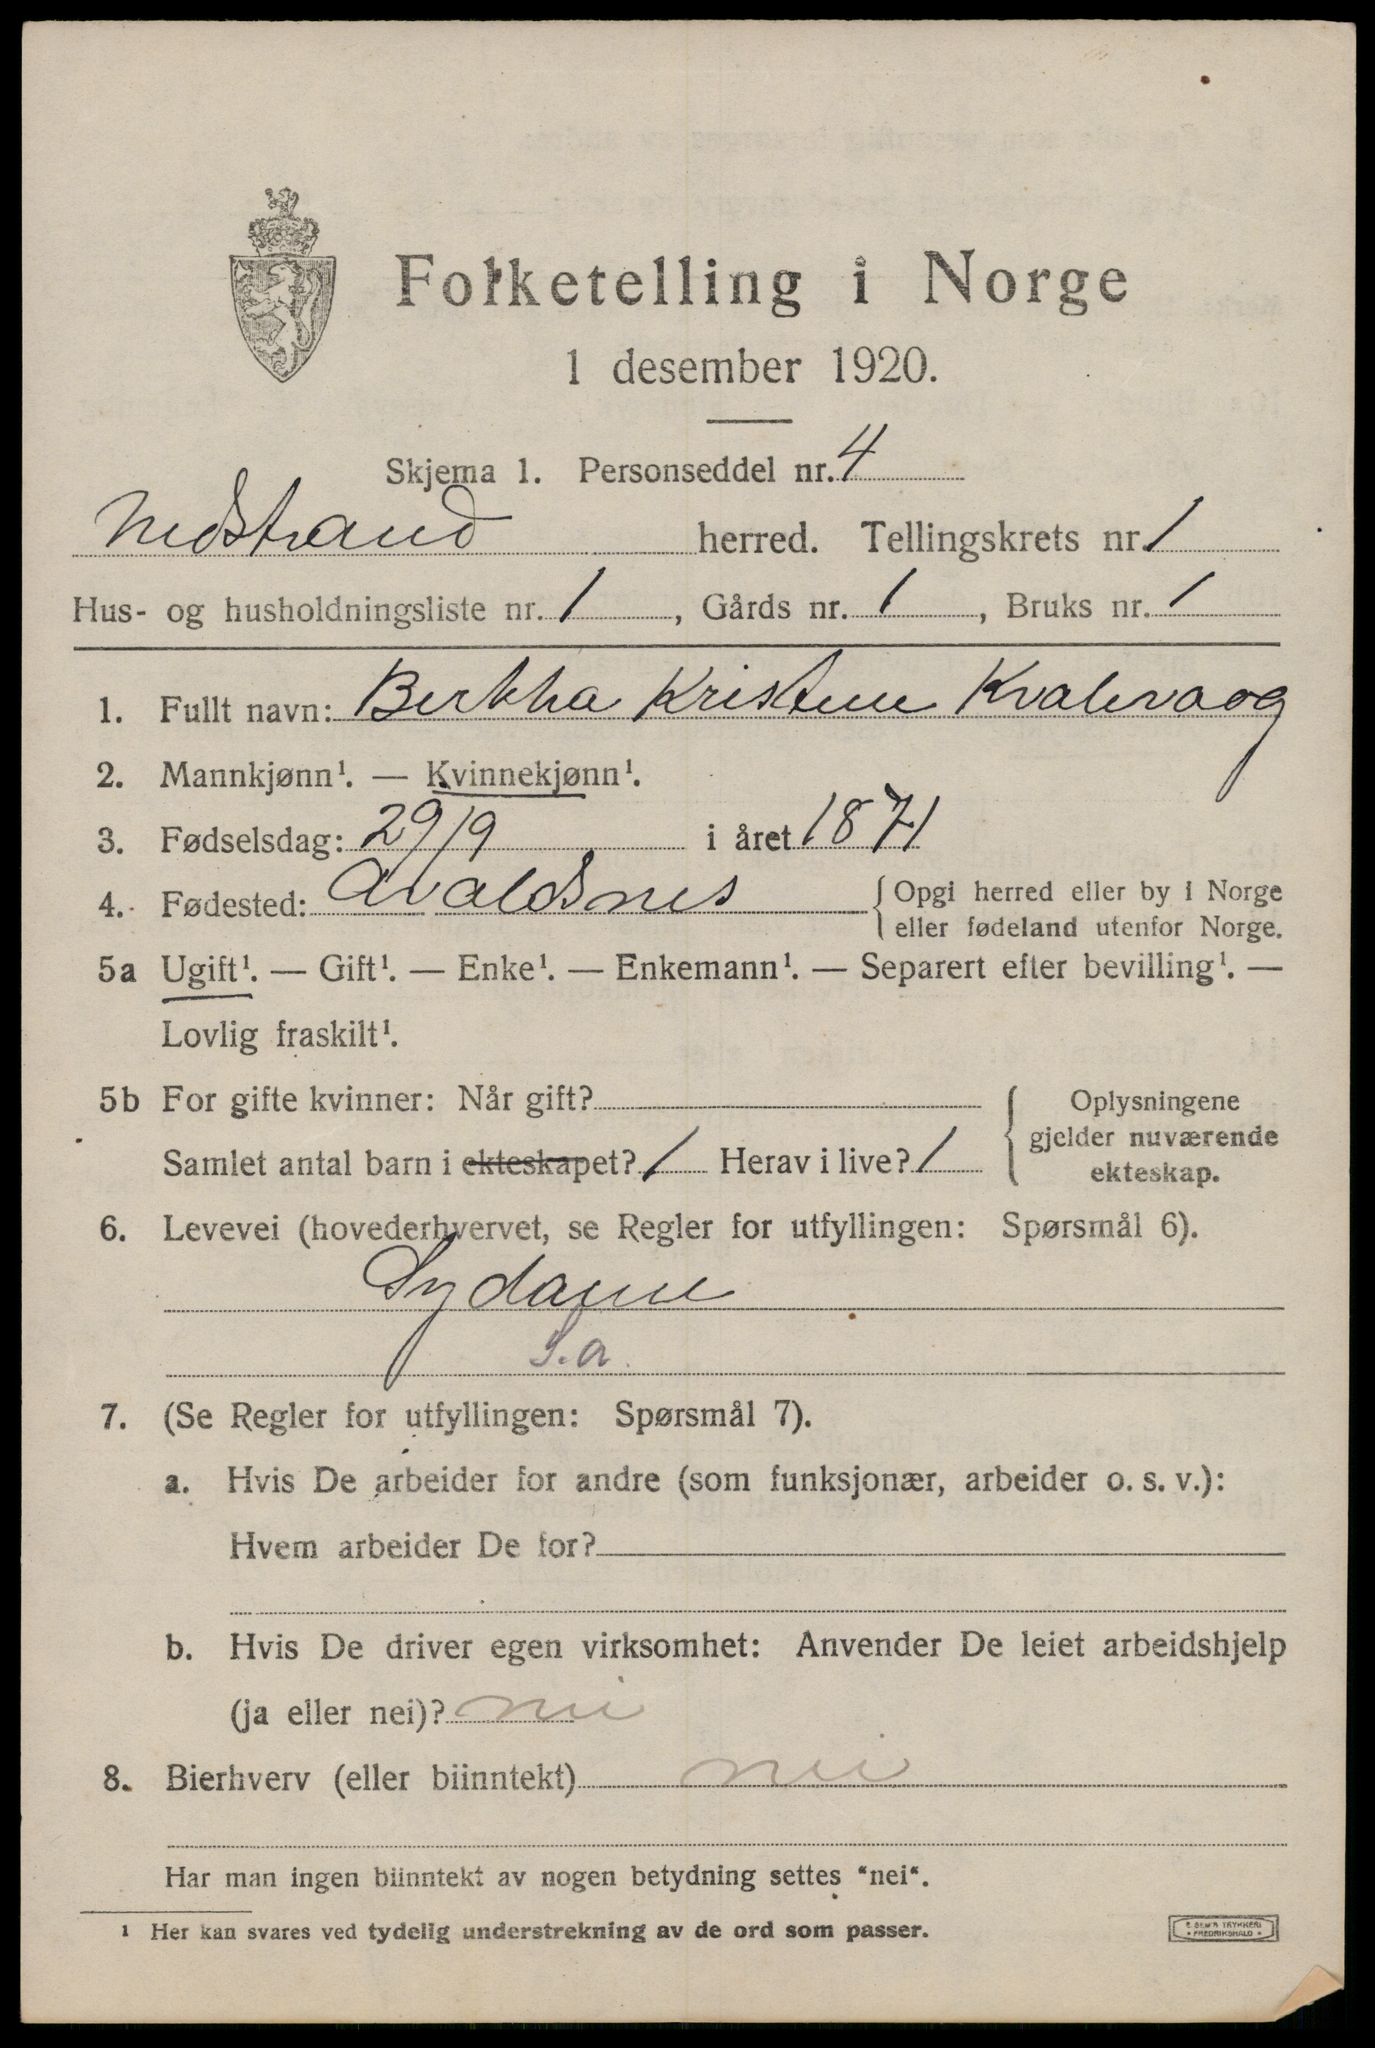 Folketelling i Norge
1 desember 1920.
Skjema 1. Personseddel nr. 4
Nedstrand herred. Tellingskrets nr. 1
Hus- og husholdningsliste nr. 1, Gårds nr. 1, Bruks nr. 1
1. Fullt navn: Berthha Kristine Kvalevaag
2. Mannkjønn¹. — Kvinnekjønn¹.
3. Fødselsdag: 29/9 i året 1871
4. Fødested: Avaldsnes {Opgi herred eller by i Norge
eller fødeland utenfor Norge.
5a Ugift¹. — Gift¹. — Enke¹. — Enkemann¹. — Separert efter bevilling¹. —
Lovlig fraskilt¹.
5b For gifte kvinner: Når gift?
Samlet antal barn i ekteskapet? 1 Herav i live? 1
Oplysningene
gjelder nuværende
ekteskap.
6. Levevei (hovederhvervet, se Regler for utfyllingen: Spørsmål 6).
Sydame
S.a.
7. (Se Regler for utfyllingen: Spørsmål 7).
a. Hvis De arbeider for andre (som funksjonær, arbeider o. s. v.):
Hvem arbeider De for?
b. Hvis De driver egen virksomhet: Anvender De leiet arbeidshjelp
(ja eller nei)? nei
8. Bierhverv (eller biinntekt) nei
Har man ingen biinntekt av nogen betydning settes "nei".
¹ Her kan svares ved tydelig understrekning av de ord som passer.
E SEM'S TRYKKERI
FREDRIKSHALD